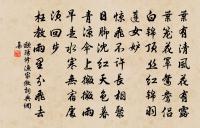 葉有清風花有露
葉籠花罩鴛鴦侶
白錦頂絲紅錦羽
蓮女妒
驚飛不許長相聚
日腳沈紅天色暮
青涼傘上微微雨
早是水寒無宿處
須回步
枉教雨里分飛去
歐陽修漁家傲